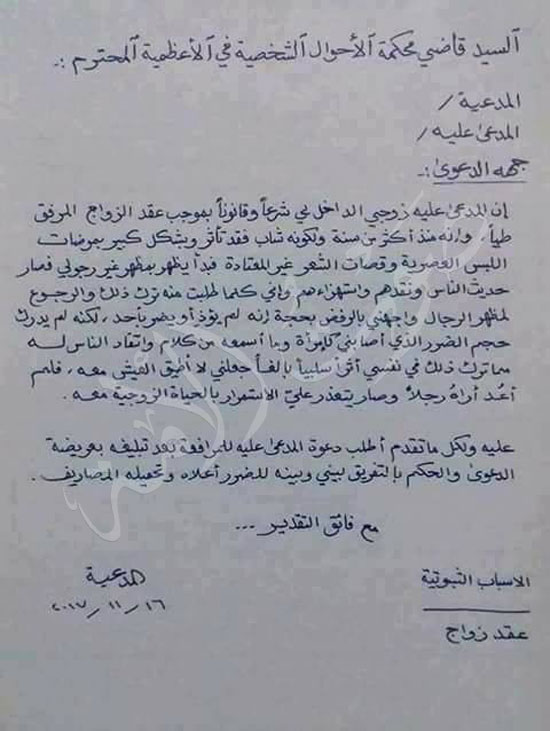 السيد قاضي محكمة الأحوال الشخصية في الأعظمية المحترم :-
المدعية /
المدعى عليه /
جهة الدعوى :-
إن المدعى عليه زوجي الداخل بي شرعاً وقانوناً بموجب عقد الزواج المرفق
طياً، وإنه منذ أكثر من سنة ولكونه شاب فقد تأثر وبشكل كبير بموضات
اللبس العصرية وقصات الشعر غير المعتادة فبدأ يظهر بمظهر غير رجولي فصار
حديث الناس ونقدهم واستهزاءهم وإني كلما طلبت منه ترك ذلك والرجوع
لمظهر الرجال واجهني بالرفض بحجة إنه لم يؤذ أو يضر بأحد، لكنه لم يدرك
حجم الضرر الذي أصابني كإمرأة وبما أسمعه من كلام وانتقاد الناس له
مما ترك ذلك في نفسي أثر سلبياً بالغاً جعلني لا أطيق العيش معه، فلم
أعُد أراهُ رجلاً وصار يتعذر عليّ الاستمرار بالحياة الزوجية معه.
عليه ولكل ما تقدم أطلب دعوة المدعى عليه للمرافعة بعد تبليغه بعريضة
الدعوى والحكم بالتفريق بيني وبينه للضرر أعلاه وتحميله المصاريف.
مع فائق التقدير ...
الاسباب الثبوتية
المدعية
عقد زواج
١٦/١١/٢٠١٧